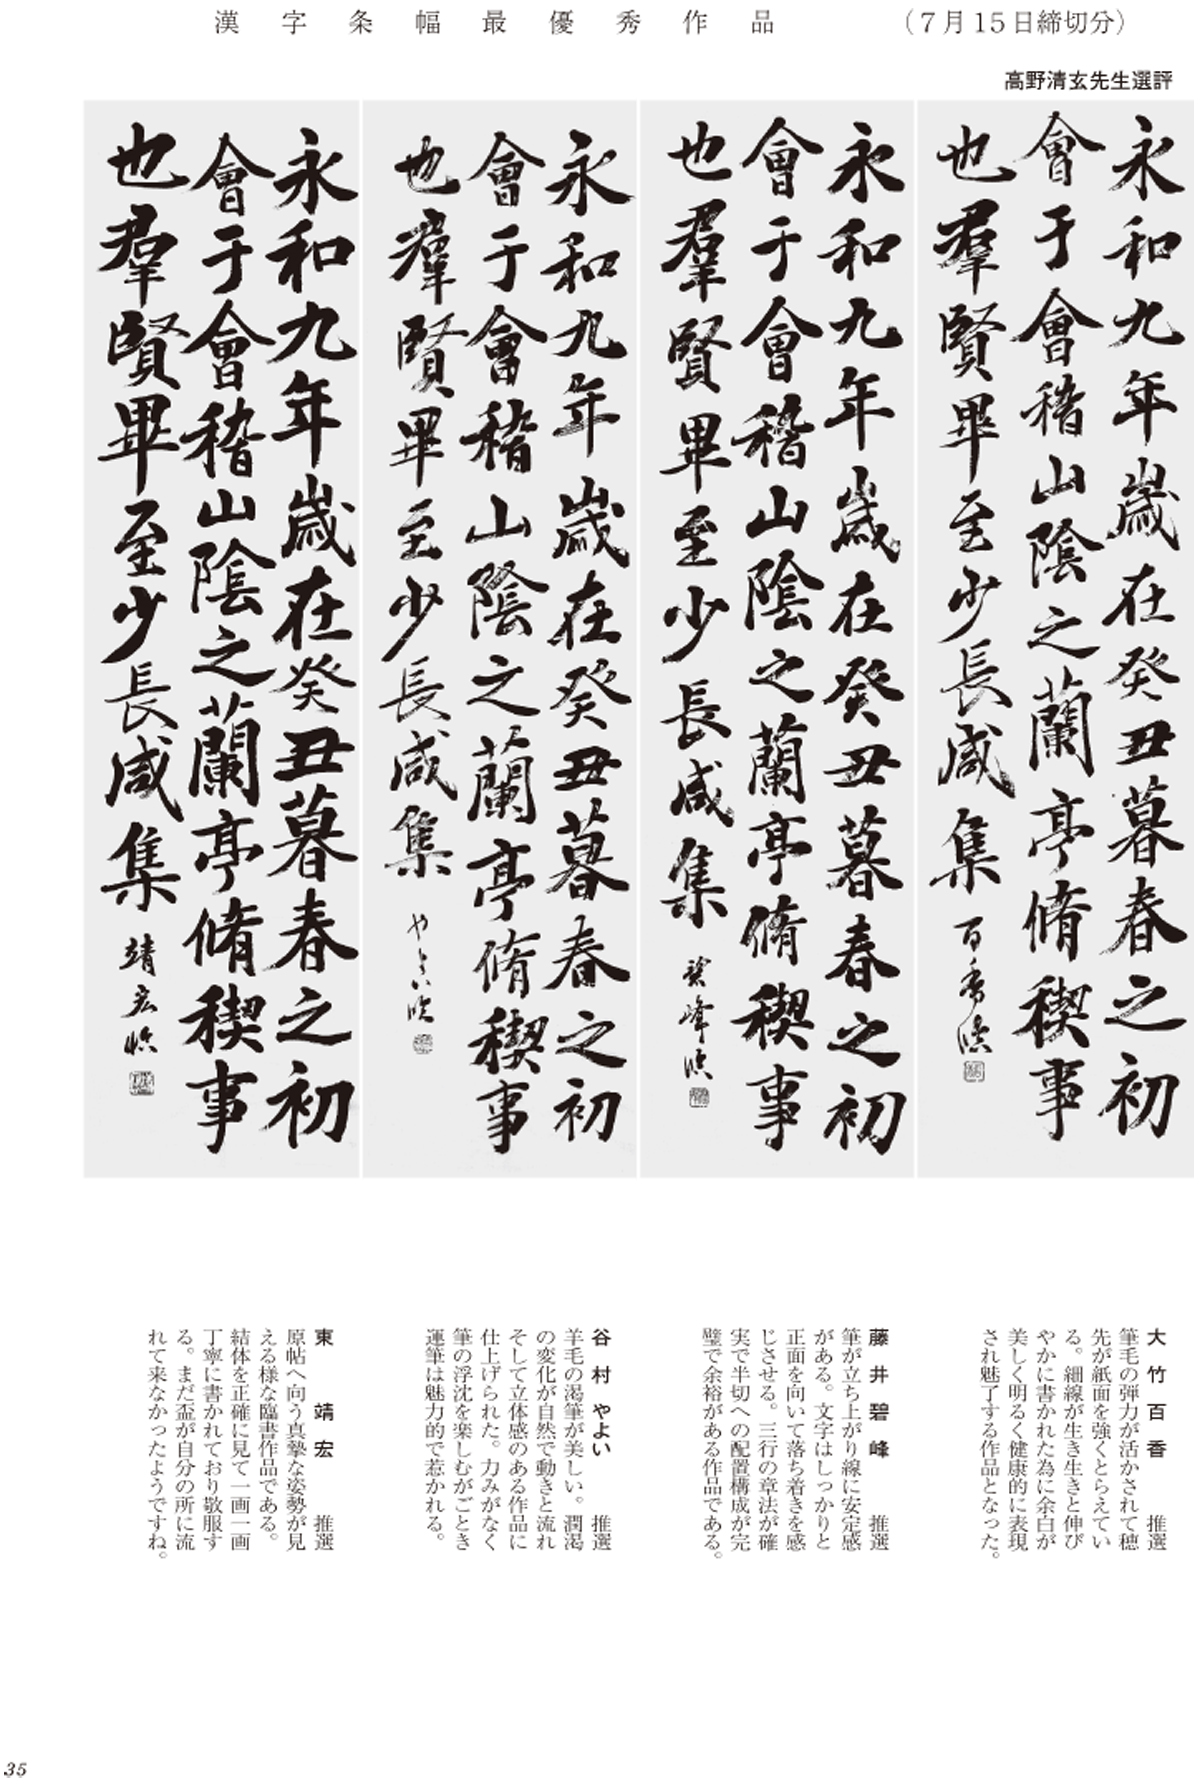 漢字条幅最優秀作品 (7月15日締切分)
高野清玄先生選評
永和九年歳在癸丑暮春之初
會于會稽山陰之蘭亭脩稧事
也羣賢畢至少長咸集 百香臨
永和九年歳在癸丑暮春之初
會于會稽山陰之蘭亭脩稧事
也羣賢畢至少長咸集 碧峰臨
永和九年歳在癸丑暮春之初
會于會稽山陰之蘭亭脩稧事
也羣賢畢至少長咸集 やよい臨
永和九年歳在癸丑暮春之初
會于會稽山陰之蘭亭脩稧事
也羣賢畢至少長咸集 靖宏臨
大竹百香 推選
筆毛の弾力が活かされて穂
先が紙面を強くとらえてい
る。細線が生き生きと伸び
やかに書かれた為に余白が
美しく明るく健康的に表現
され魅了する作品となった。
藤井碧峰 推選
筆が立ち上がり線に安定感
がある。文字はしっかりと
正面を向いて落ち着きを感
じさせる。三行の章法が確
実で半切への配置構成が完
璧で余裕がある作品である。
谷村やよい 推選
羊毛の渇筆が美しい。潤渇
の変化が自然で動きと流れ
そして立体感のある作品に
仕上げられた。力みがなく
筆の浮沈を楽しむがごとき
運筆は魅力的で惹かれる。
東靖宏 推選
原帖へ向う真摯な姿勢が見
える様な臨書作品である。
結体を正確に見て一画一画
丁寧に書かれており敬服す
る。まだ盃が自分の所に流
れて来なかったようですね。
35